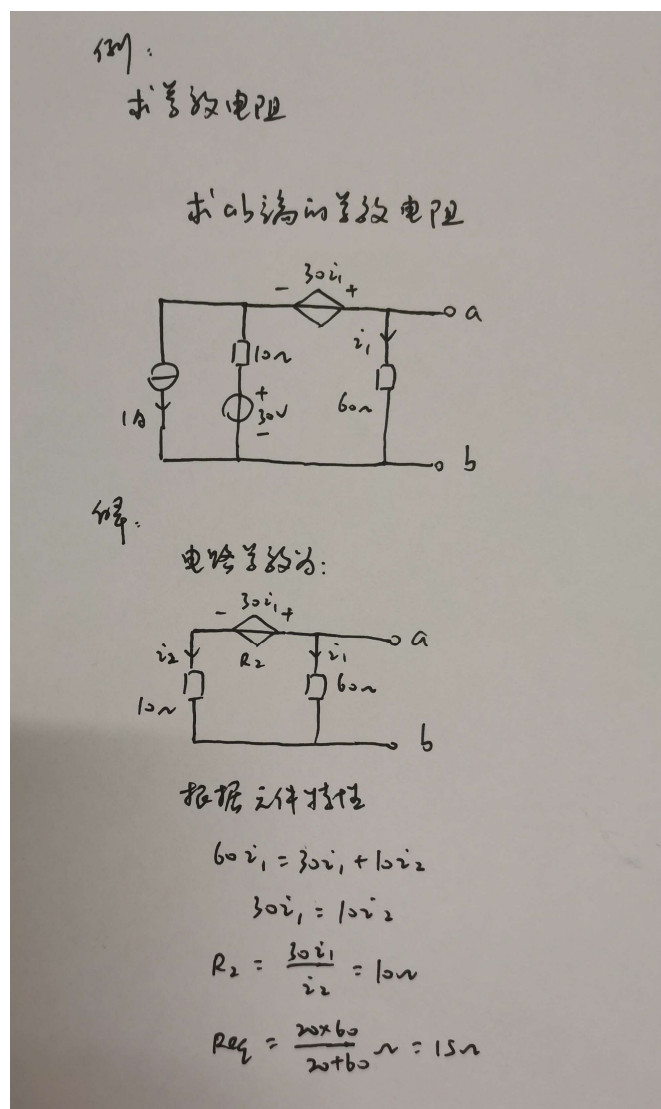 例：
求等效电阻
求ab端的等效电阻
- 30i₁ +
a
10Ω
i₁
1A
+
30V
-
60Ω
b
解：
电路等效为：
- 30i₁ +
a
i₂
R₂
i₁
10Ω
60Ω
b
根据元件特性
60i₁ = 30i₁ + 10i₂
30i₁ = 10i₂
R₂ = 30i₁/i₂ = 10Ω
Req = 20×60/20+60 Ω = 15Ω